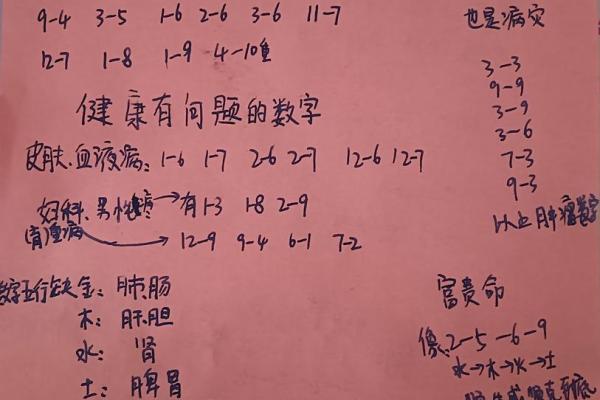 9-4 3-5 1-6 2-6 3-6 11-7
12-7 1-8 1-9 4-10重
健康有问题的数字
皮肤.血液病: 1-6 1-7 2-6 2-7 12-6 12-7
妇科、男性 有1-3 1-8 2-9
12-9 9-4 6-1 7-2
数字五行缺金: 肺.肠
木: 肝.胆
水: 肾
土: 脾胃
也是病灾
3-3
9-9
3-9
3-6
7-3
9-3
以上肿瘤数字
富贵命
像2-5-6-9
水→木→火→土